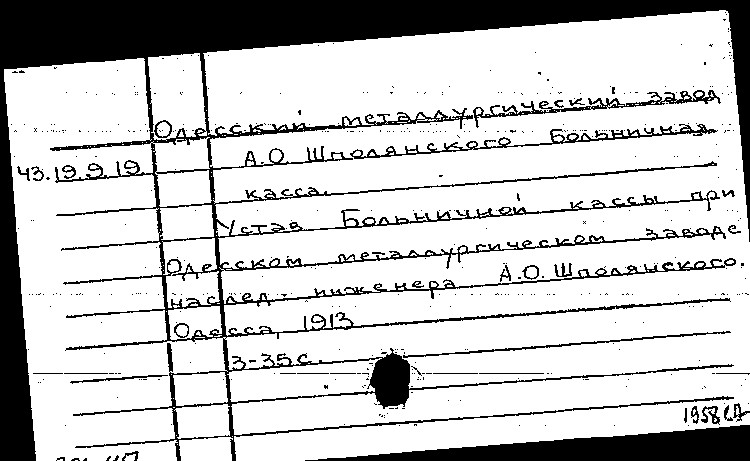 Одесский металлургический завод
43.19.9.19 А.О Шполянского Больничная
касса.
Устав Больничной кассы при
Одесском металлургическом заводе
наслед. инженера А.О.Шполянского.
Одесса, 1913
3-35с.
1958